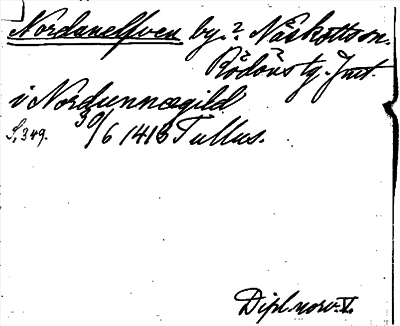 Nordanelfven by.? Näskottsn.
Rödöns tg. Jmt.
i Nordunnægild
S. 349. 30/6 1413 Tullus.
Dipl norv. V.